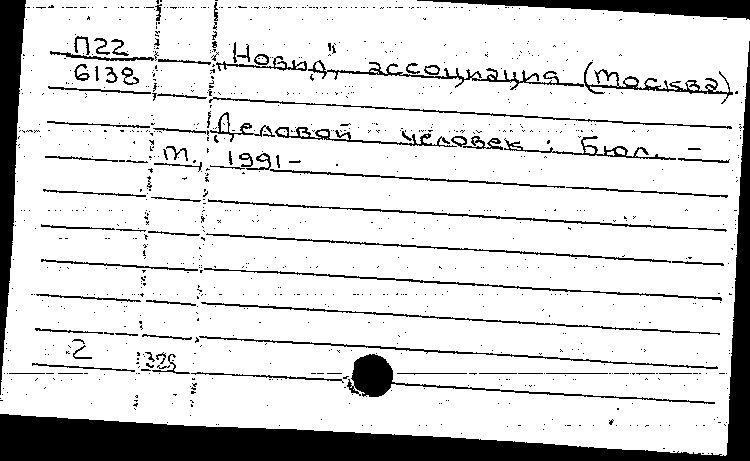 П22
6138
„Новид", ассоциация (Москва).
Деловой человек : Бюл. –
М., 1991–
2